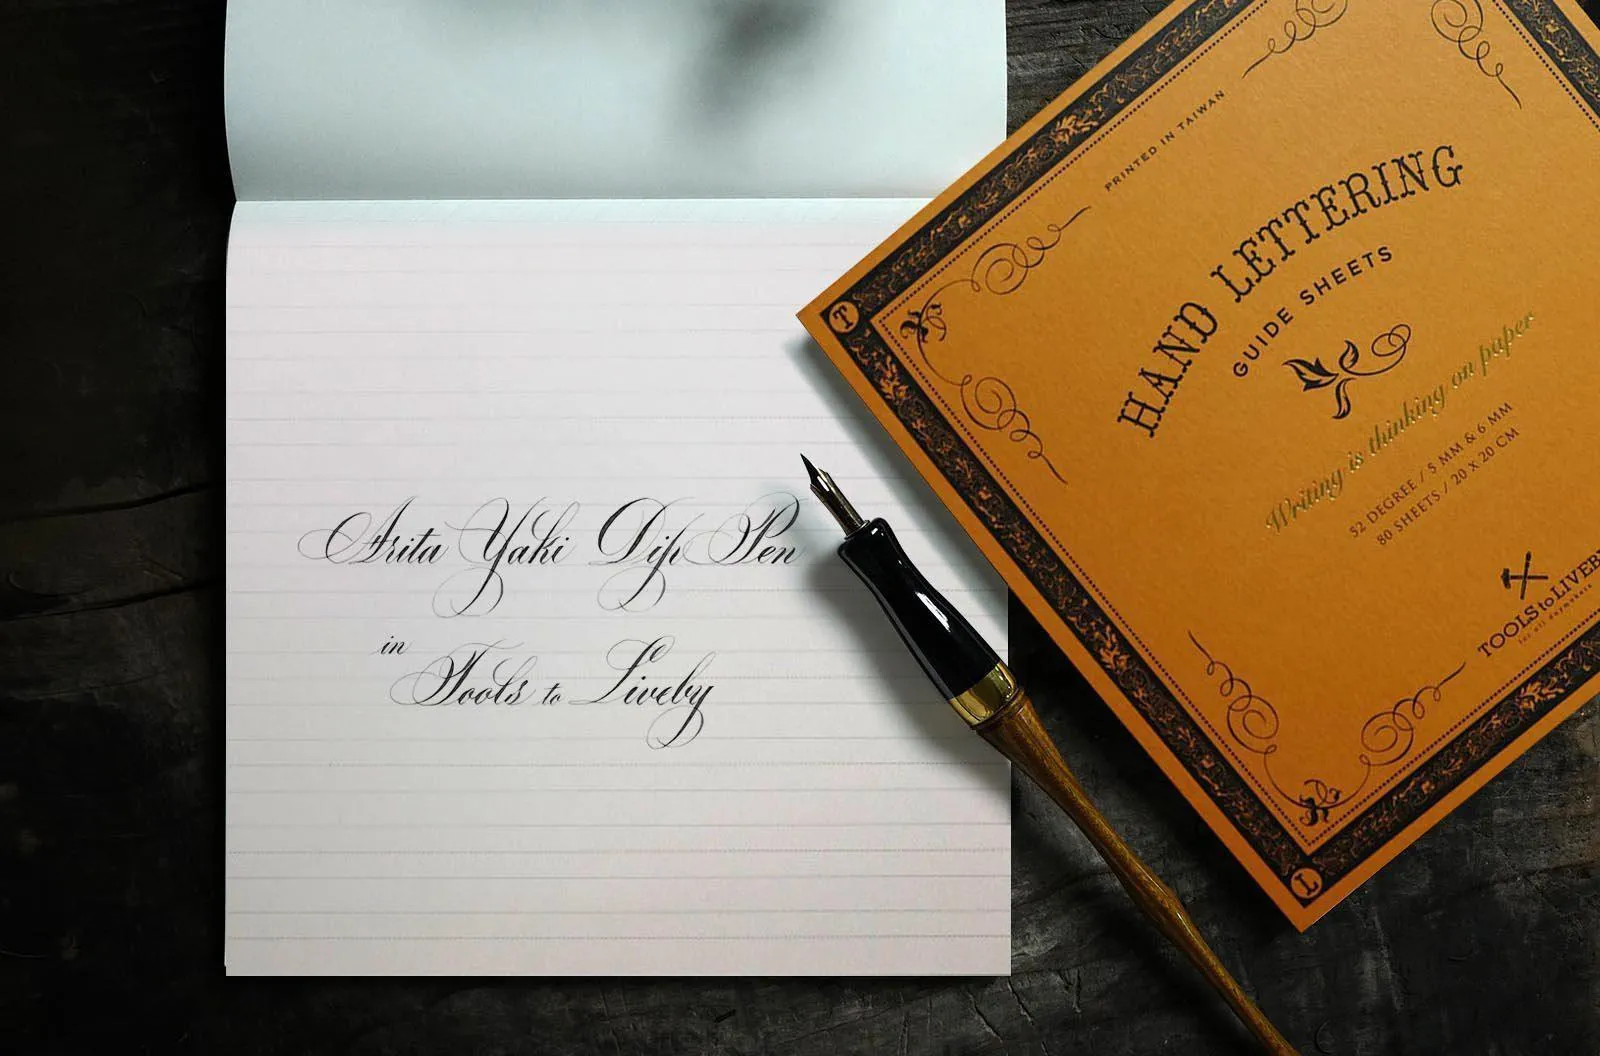 Arita Yaki Dip Pen
in
Tools to Liveby
PRINTED IN TAIWAN
HAND LETTERING
GUIDE SHEETS
Writing is thinking on paper
52 DEGREE / 5 MM & 6 MM
80 SHEETS / 20 x 20 CM
TOOLS to LIVEBY
T
L